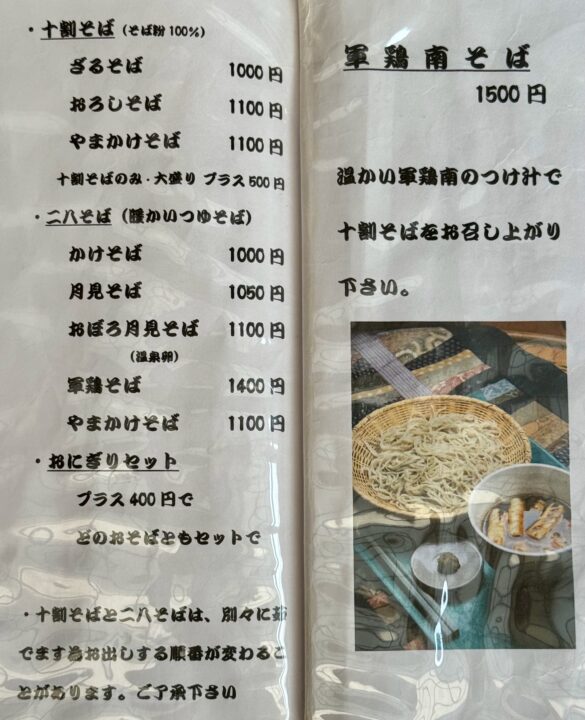 ・十割そば（そば粉100％）
ざるそば 1000円
おろしそば 1100円
やまかけそば 1100円
十割そばのみ・大盛り プラス500円
・二八そば（暖かいつゆそば）
かけそば 1000円
月見そば 1050円
おぼろ月見そば 1100円
（温泉卵）
軍鶏そば 1400円
やまかけそば 1100円
・おにぎりセット
プラス400円で
どのおそばともセットで
・十割そばと二八そばは、別々に茹
でます為お出しする順番が変わるこ
とがあります。ご了承下さい
軍鶏南そば
1500円
温かい軍鶏南のつけ汁で
十割そばをお召し上がり
下さい。